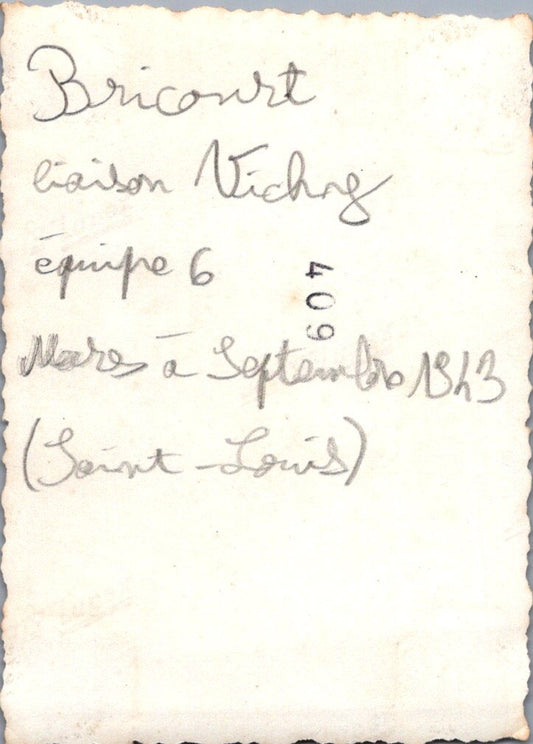 Bricourt
liaison Vichy
équipe 6
409
Mars à Septembre 1943
(Saint-Louis)